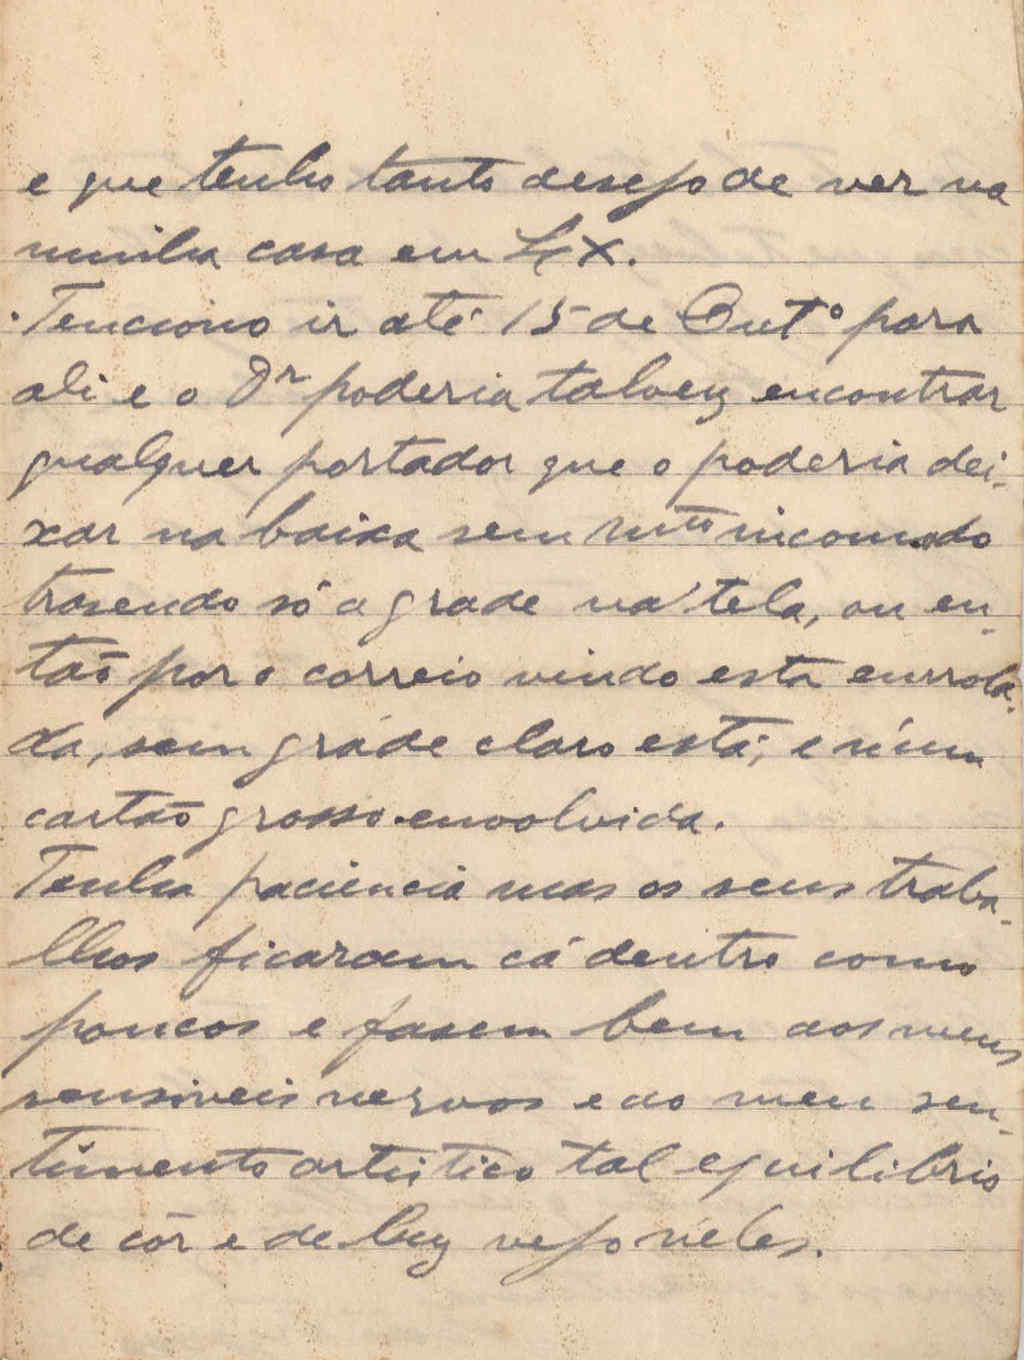 e que tenho tanto desejo de ver na
minha casa em Lx.
Tenciono ir até 15 de Outº para
ali e o Dr poderia talvez encontrar
qualquer portador que o poderia dei-
xar na baixa sem mtº incomodo
trasendo só a grade na tela, ou en-
tão por o correio vindo esta enrrola-
da, sem gráde claro está; e n'um
cartão grosso envolvida.
Tenha paciencia mas os seus traba-
lhos ficaram cá dentro como
poucos e fasem bem aos meus
sensiveis nervos e ao meu sen-
timento artistico tal equilibrio
de côr e de luz vejo n'eles.